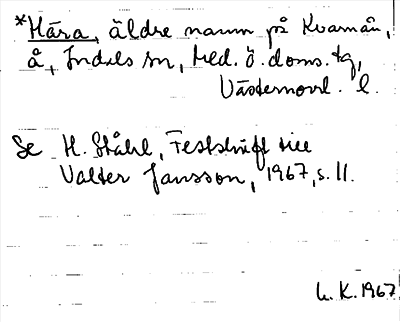 *Hära, äldre namn på Kvarnån,
å, Indals sn, Med. ö. doms. tg,
Västernorrl. l.
Se H. Ståhl, Festskrift till
Valter Jansson, 1967, s. 11.
L. K. 1967